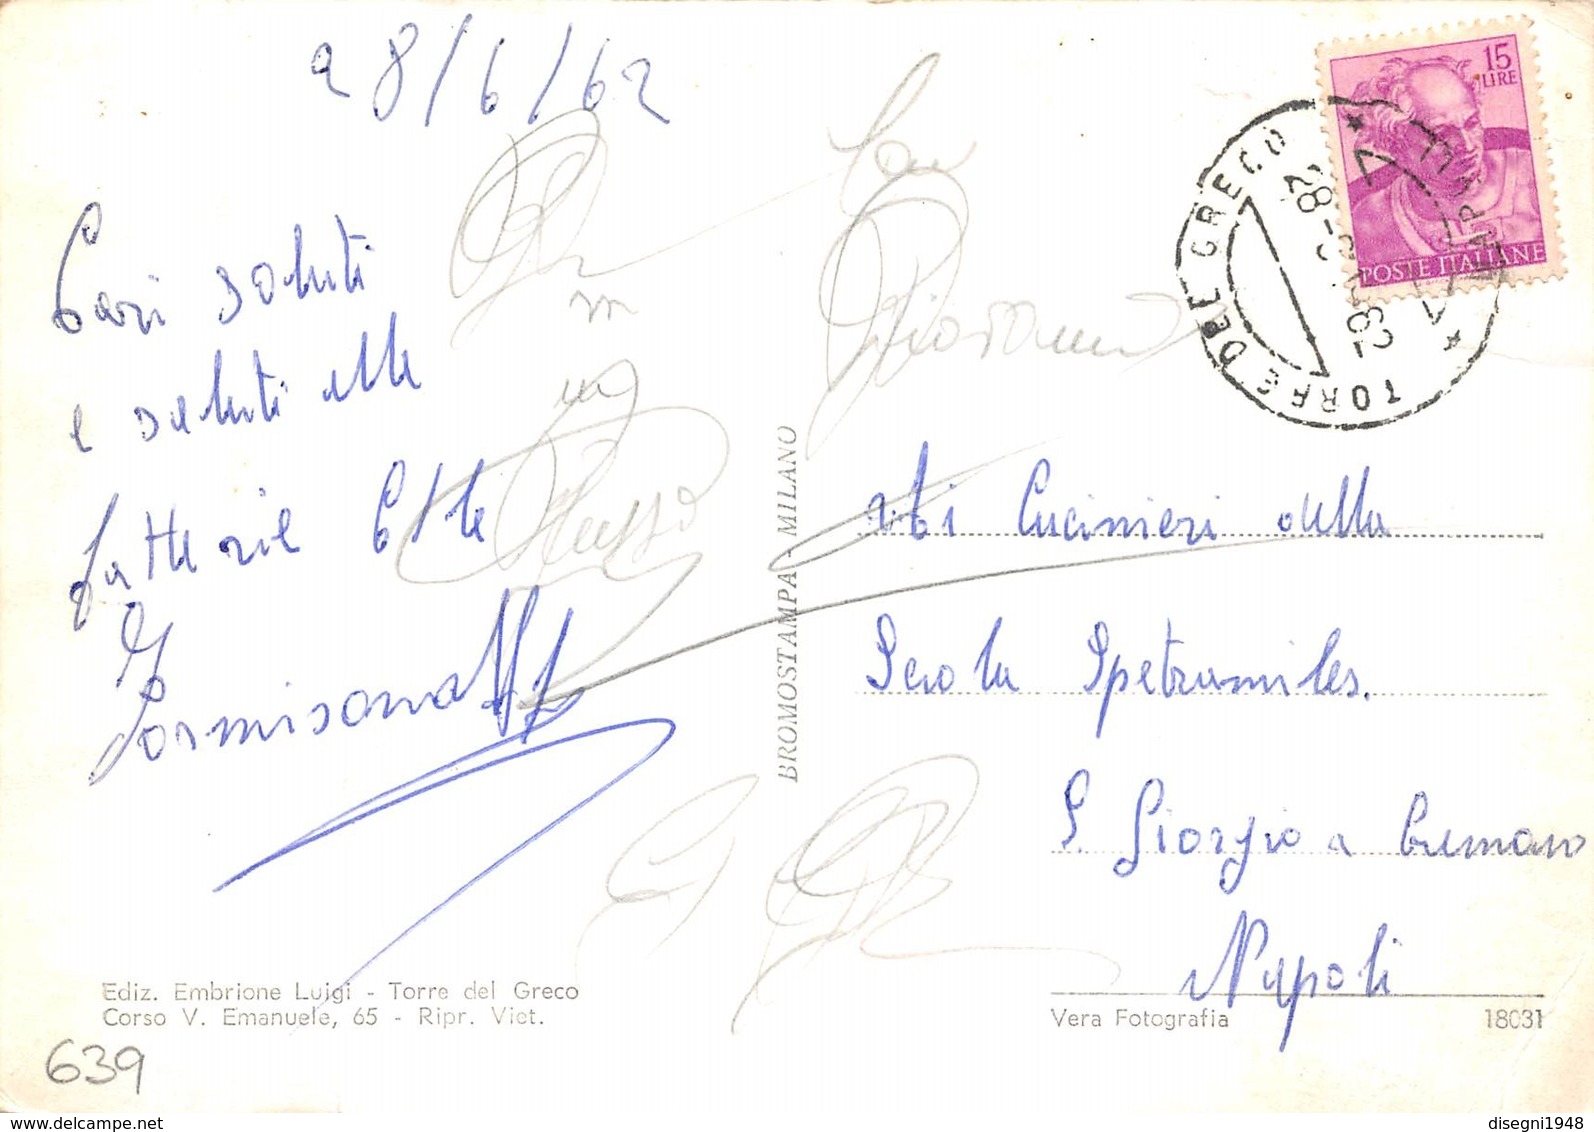 28/6/62
Cari saluti
e saluti alle
fatterie
Formisano
15
LIRE
POSTE ITALIANE
TORRE DEL GRECO
NAPOLI
28-6
1962
Giovanni
Russo
BROMOSTAMPA - MILANO
Ai Cucinieri della
Scola Spetramiles.
S. Giorgio a Cremano
Napoli
Ediz. Embrione Luigi - Torre del Greco
Corso V. Emanuele, 65 - Ripr. Viet.
Vera Fotografia 18031
639
disegni1948